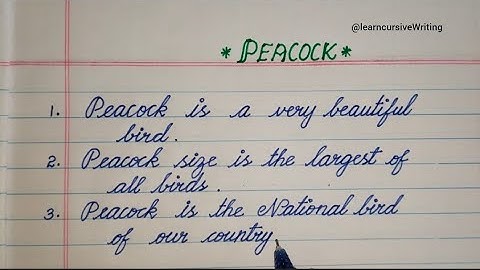 @learncursiveWriting
* PEACOCK *
1. Peacock is a very beautiful
bird.
2. Peacock size is the largest of
all birds.
3. Peacock is the National bird
of our country